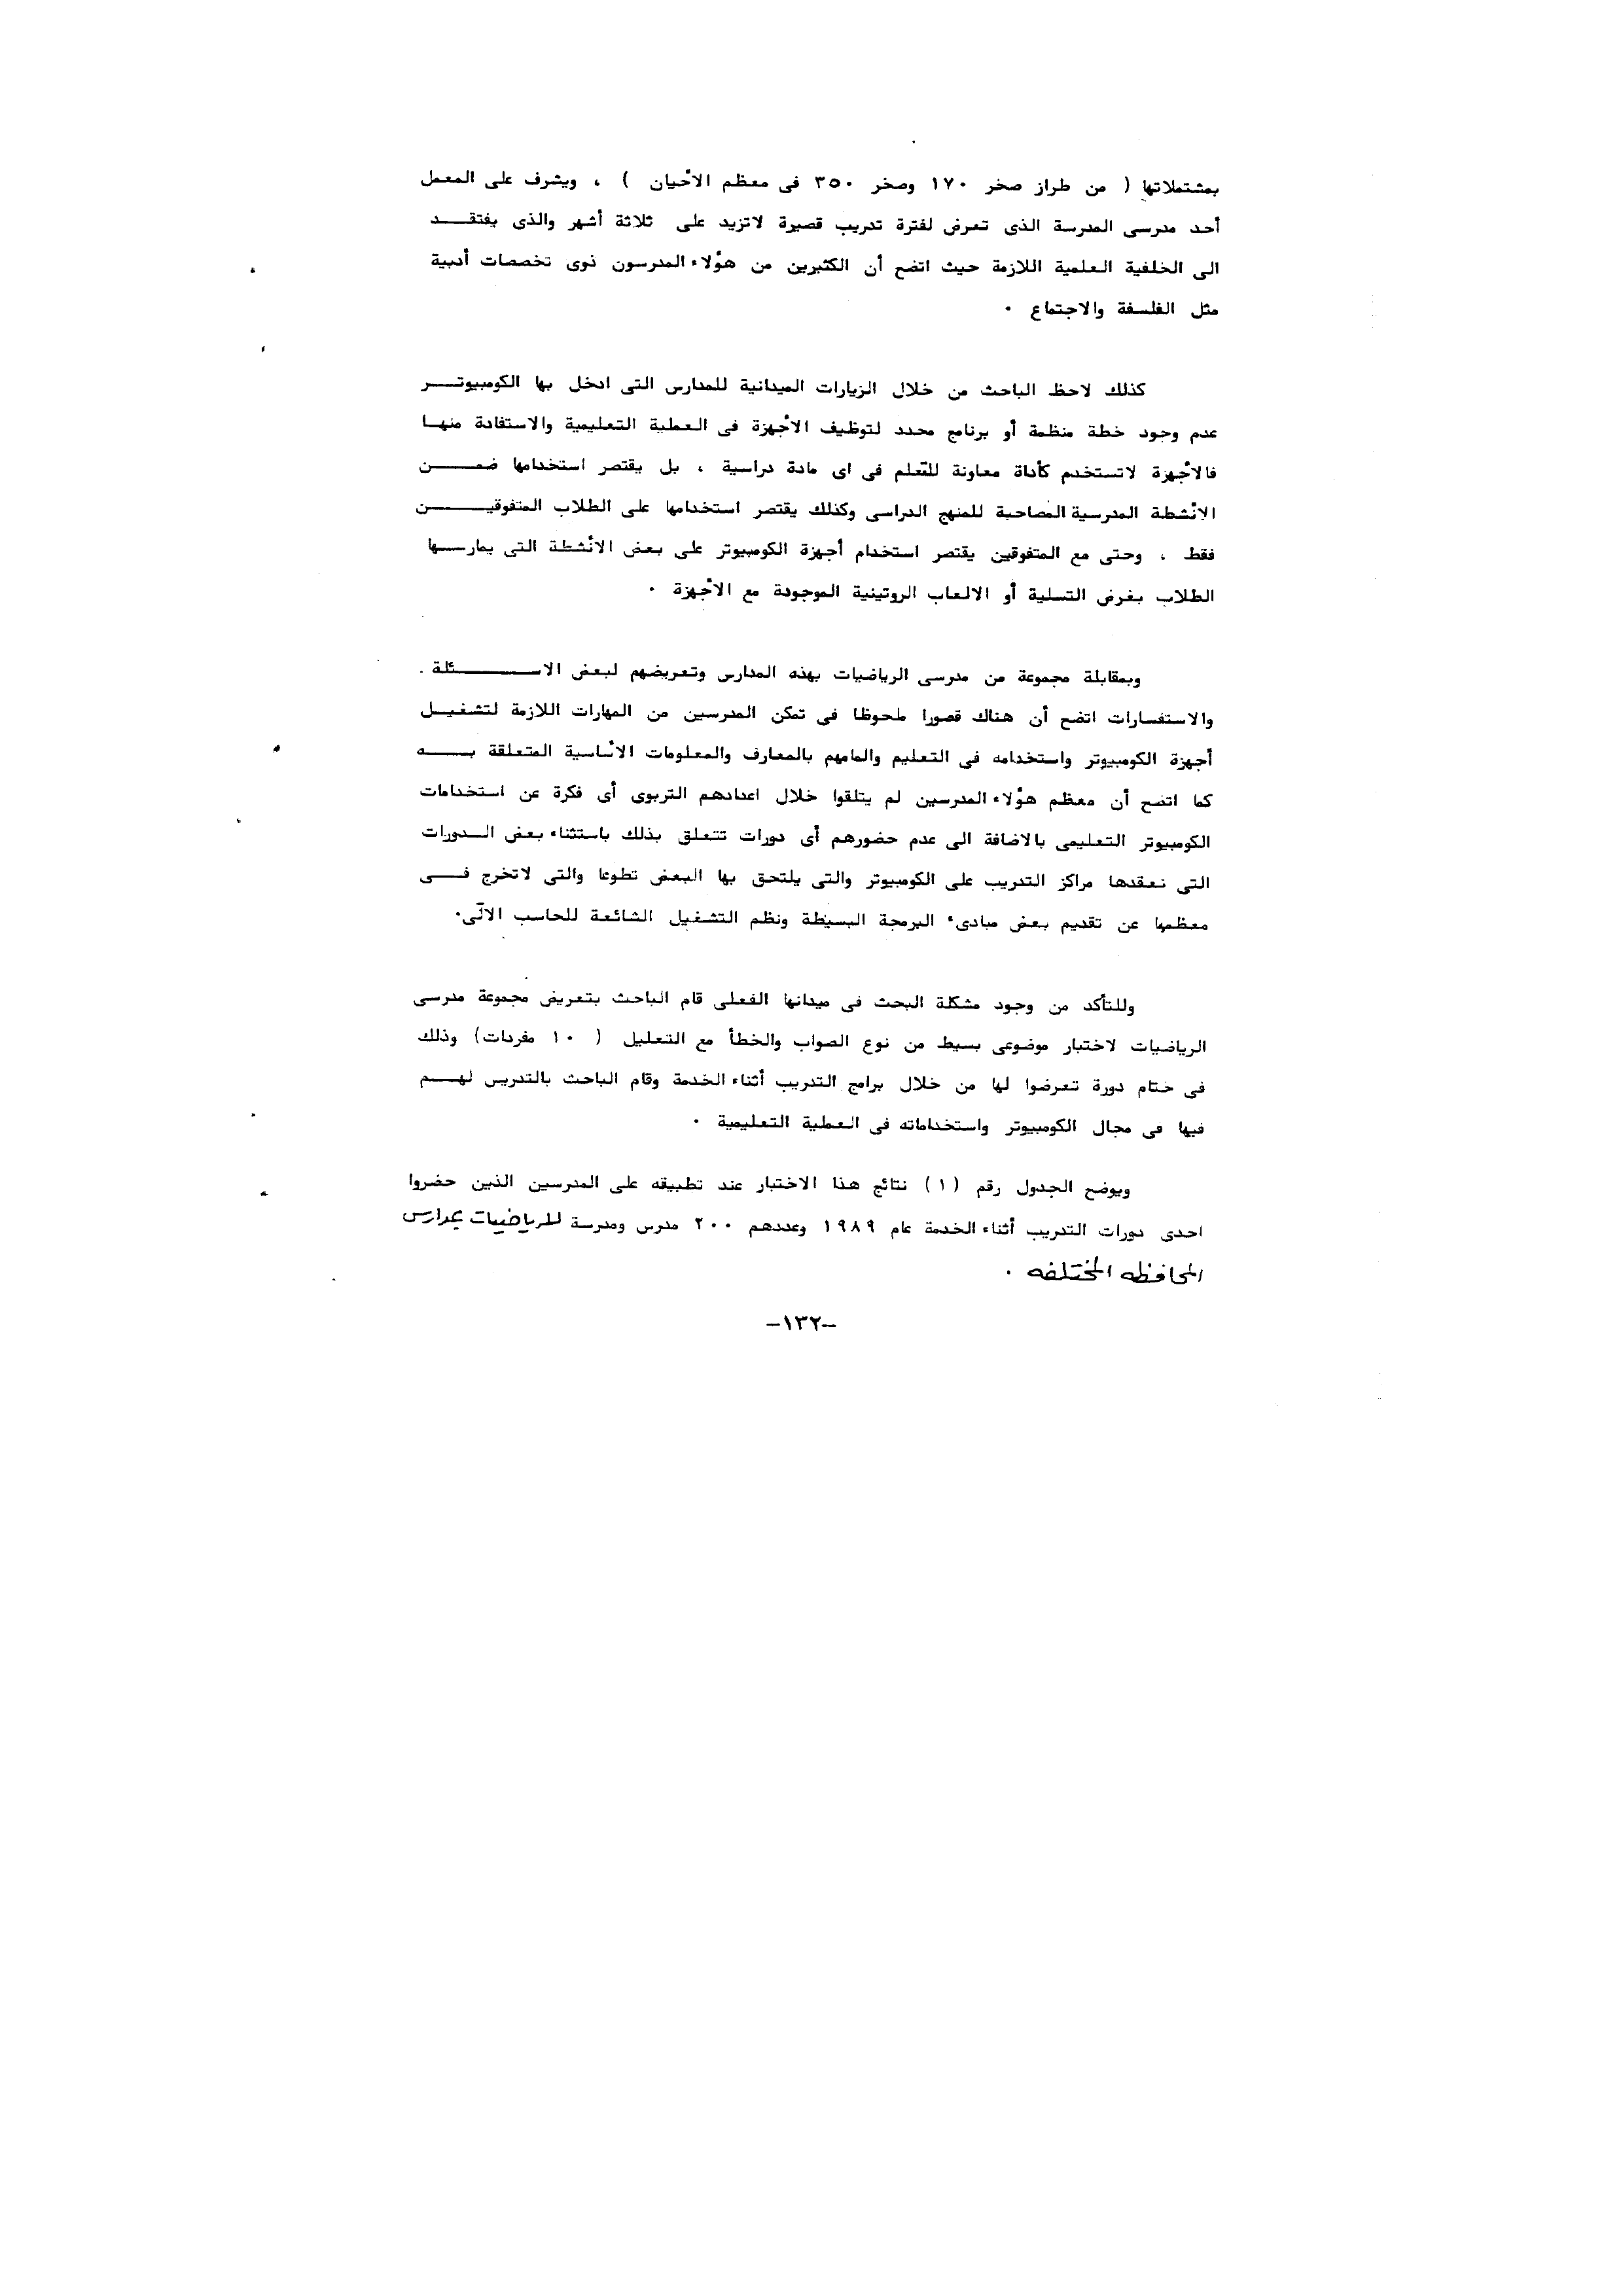 بمشتملاتها ( من طراز صخر ١٧٠ وصخر ٣٥٠ فى معظم الأحيان ) ، ويشرف على المعمل
أحد مدرسى المدرسة الذى تعرض لفترة تدريب قصيرة لاتزيد على ثلاثة أشهر والذى يفتقد
الى الخلفية العلمية اللازمة حيث اتضح أن الكثيرين من هؤلاء المدرسون ذوى تخصصات أدبية
مثل الفلسفة والاجتماع .
كذلك لاحظ الباحث من خلال الزيارات الميدانية للمدارس التى ادخل بها الكومبيوتر
عدم وجود خطة منظمة أو برنامج محدد لتوظيف الأجهزة فى العملية التعليمية والاستفادة منها
فالأجهزة لاتستخدم كأداة معاونة للتعلم فى اى مادة دراسية ، بل يقتصر استخدامها ضمن
الأنشطة المدرسية المصاحبة للمنهج الدراسى وكذلك يقتصر استخدامها على الطلاب المتفوقين
فقط ، وحتى مع المتفوقين يقتصر استخدام أجهزة الكومبيوتر على بعض الأنشطة التى يمارسها
الطلاب بغرض التسلية أو الالعاب الروتينية الموجودة مع الأجهزة .
وبمقابلة مجموعة من مدرسى الرياضيات بهذه المدارس وتعريضهم لبعض الاسئلة .
والاستفسارات اتضح أن هناك قصورا ملحوظا فى تمكن المدرسين من المهارات اللازمة لتشغيل
أجهزة الكومبيوتر واستخدامه فى التعليم والمامهم بالمعارف والمعلومات الأساسية المتعلقة به
كما اتضح أن معظم هؤلاء المدرسين لم يتلقوا خلال اعدادهم التربوى أى فكرة عن استخدامات
الكومبيوتر التعليمى بالاضافة الى عدم حضورهم أى دورات تتعلق بذلك باستثناء بعض الدورات
التى تعقدها مراكز التدريب على الكومبيوتر والتى يلتحق بها البعض تطوعا والتى لاتخرج فى
معظمها عن تقديم بعض مبادىء البرمجة البسيطة ونظم التشغيل الشائعة للحاسب الآلى.
وللتأكد من وجود مشكلة البحث فى ميدانها الفعلى قام الباحث بتعريض مجموعة مدرسى
الرياضيات لاختبار موضوعى بسيط من نوع الصواب والخطأ مع التعليل ( ١٠ مفردات) وذلك
فى ختام دورة تعرضوا لها من خلال برامج التدريب أثناء الخدمة وقام الباحث بالتدريس لهم
فيها فى مجال الكومبيوتر واستخداماته فى العملية التعليمية .
ويوضح الجدول رقم (١) نتائج هذا الاختبار عند تطبيقه على المدرسين الذين حضروا
احدى دورات التدريب أثناء الخدمة عام ١٩٨٩ وعددهم ٢٠٠ مدرس ومدرسة للرياضيات بمدارس
المحافظه المختلفه .
-١٣٢-